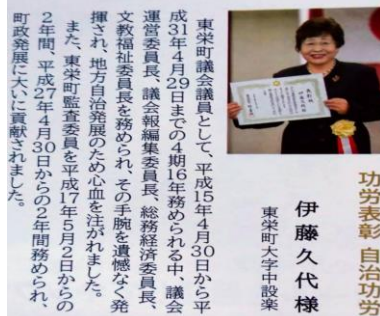 功労表彰 自治功労
伊藤久代様
東栄町大字中設楽
東栄町議会議員として、平成15年4月30日から平
成31年4月29日までの4期16年務められる中、議会
運営委員長、議会報編集委員長、総務経済委員長、
文教福祉委員長を務められ、その手腕を遺憾なく発
揮され、地方自治発展のため心血を注がれました。
また、東栄町監査委員を平成17年5月2日からの
2年間、平成27年4月30日からの2年間務められ、
町政発展に大いに貢献されました。